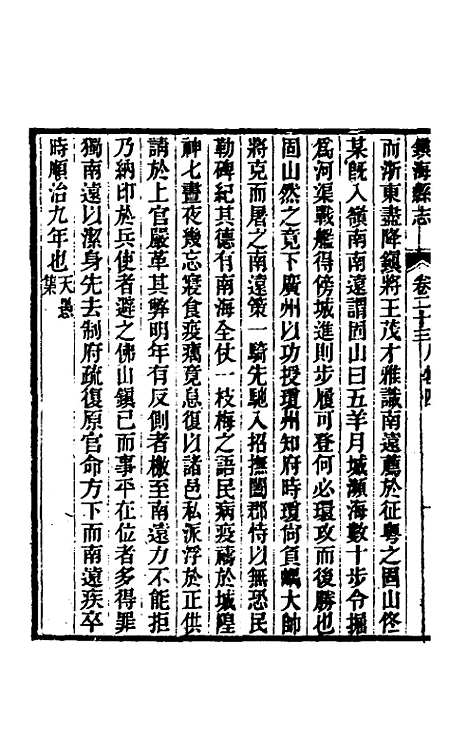 鎮海縣志 卷二十三人物四
而浙東盡降鎮將王茂才雅識南遠薦於征粵之固山佟
某旣入嶺南南遠謂固山曰五羊月城瀕海數十步令掘
爲河渠戰艦得傍城進則步履可登何必環攻而後勝也
固山然之竟下廣州以功授瓊州知府時瓊尙負嵎大帥
將克而屠之南遠策一騎先馳入招撫闔郡恃以無恐民
勒碑紀其德有南海全仗一枝梅之語民病疫禱於城隍
神七晝夜幾忘寢食疫癘竟息復以諸邑私派浮於正供
請於上官嚴革其弊明年有反側者檄至南遠力不能拒
乃納印於兵使者避之佛山鎮已而事平在位者多得罪
獨南遠以潔身先去制府疏復原官命方下而南遠疾卒
時順治九年也天愚集